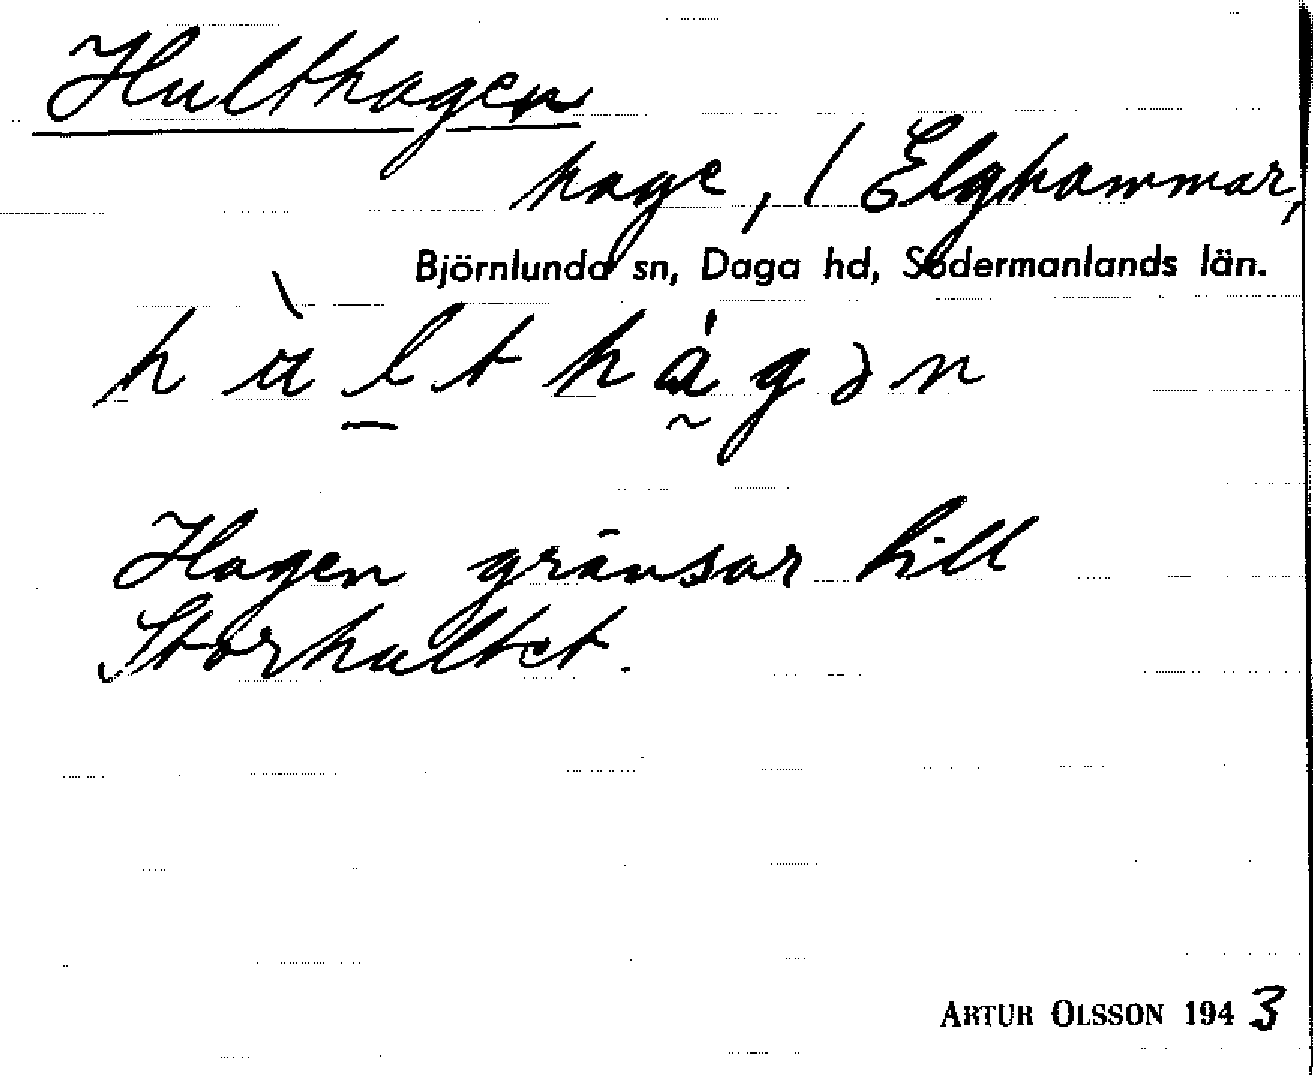 Hulthagen
hage, / Elghammar,
Björnlunda sn, Daga hd, Södermanlands län.
h ù l t h á g ə n
Hagen gränsar till
Storhultet.
ARTUR OLSSON 1943